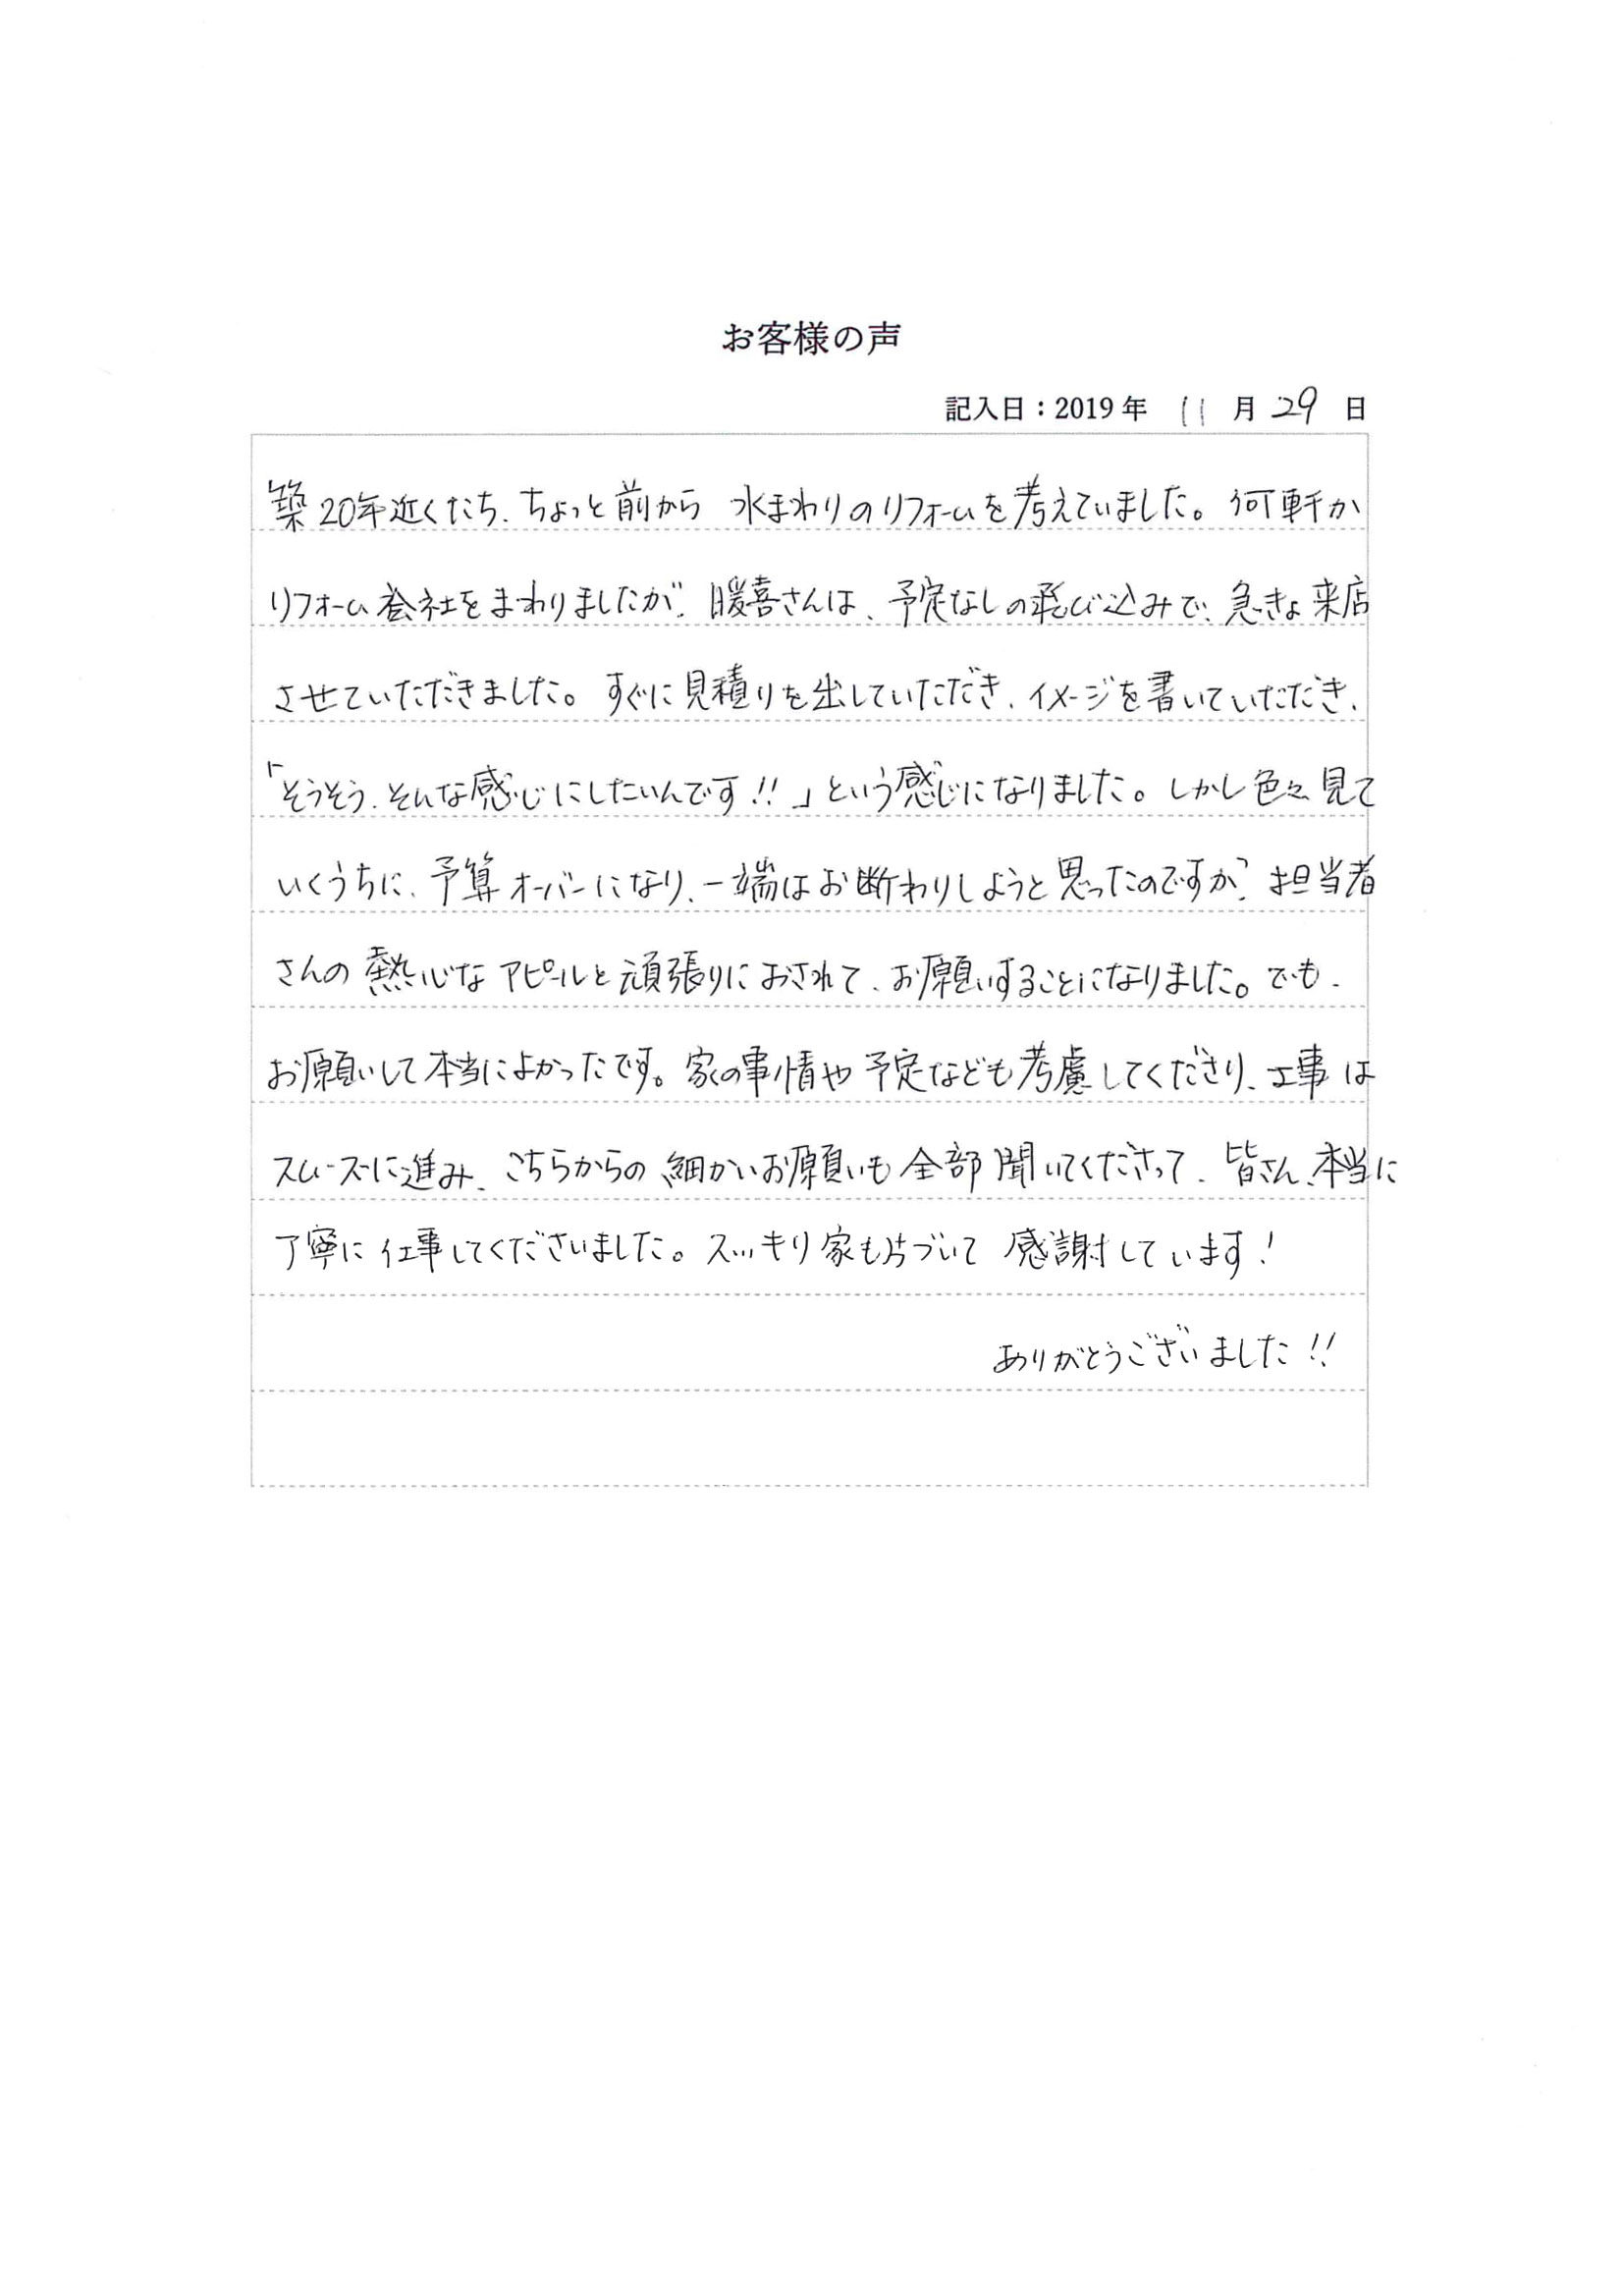 お客様の声
記入日：2019年 11月29日
築20年近くたち、ちょっと前から 水まわりのリフォームを考えていました。何軒か
リフォーム会社をまわりましたが、暖喜さんは、予定なしの飛び込みで、急きょ来店
させていただきました。すぐに見積りを出していただき、イメージを書いていただき、
「そうそう、そんな感じにしたいんです!!」という感じになりました。しかし色々見て
いくうちに、予算オーバーになり、一端はお断わりしようと思ったのですが、担当者
さんの熱心なアピールと頑張りにおされて、お願いすることになりました。でも、
お願いして本当によかったです。家の事情や予定なども考慮してくださり、工事は
スムーズに進み、こちらからの細かいお願いも全部聞いてくださって、皆さん、本当に
丁寧に仕事してくださいました。スッキリ家も片づいて 感謝しています!
ありがとうございました!!